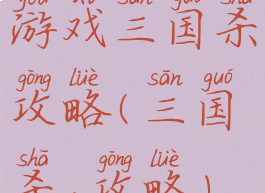 yóu xì sān guó shā
游戏三国杀
gōng lüè sān guó
攻略(三国
shā gōng lüè
杀攻略)